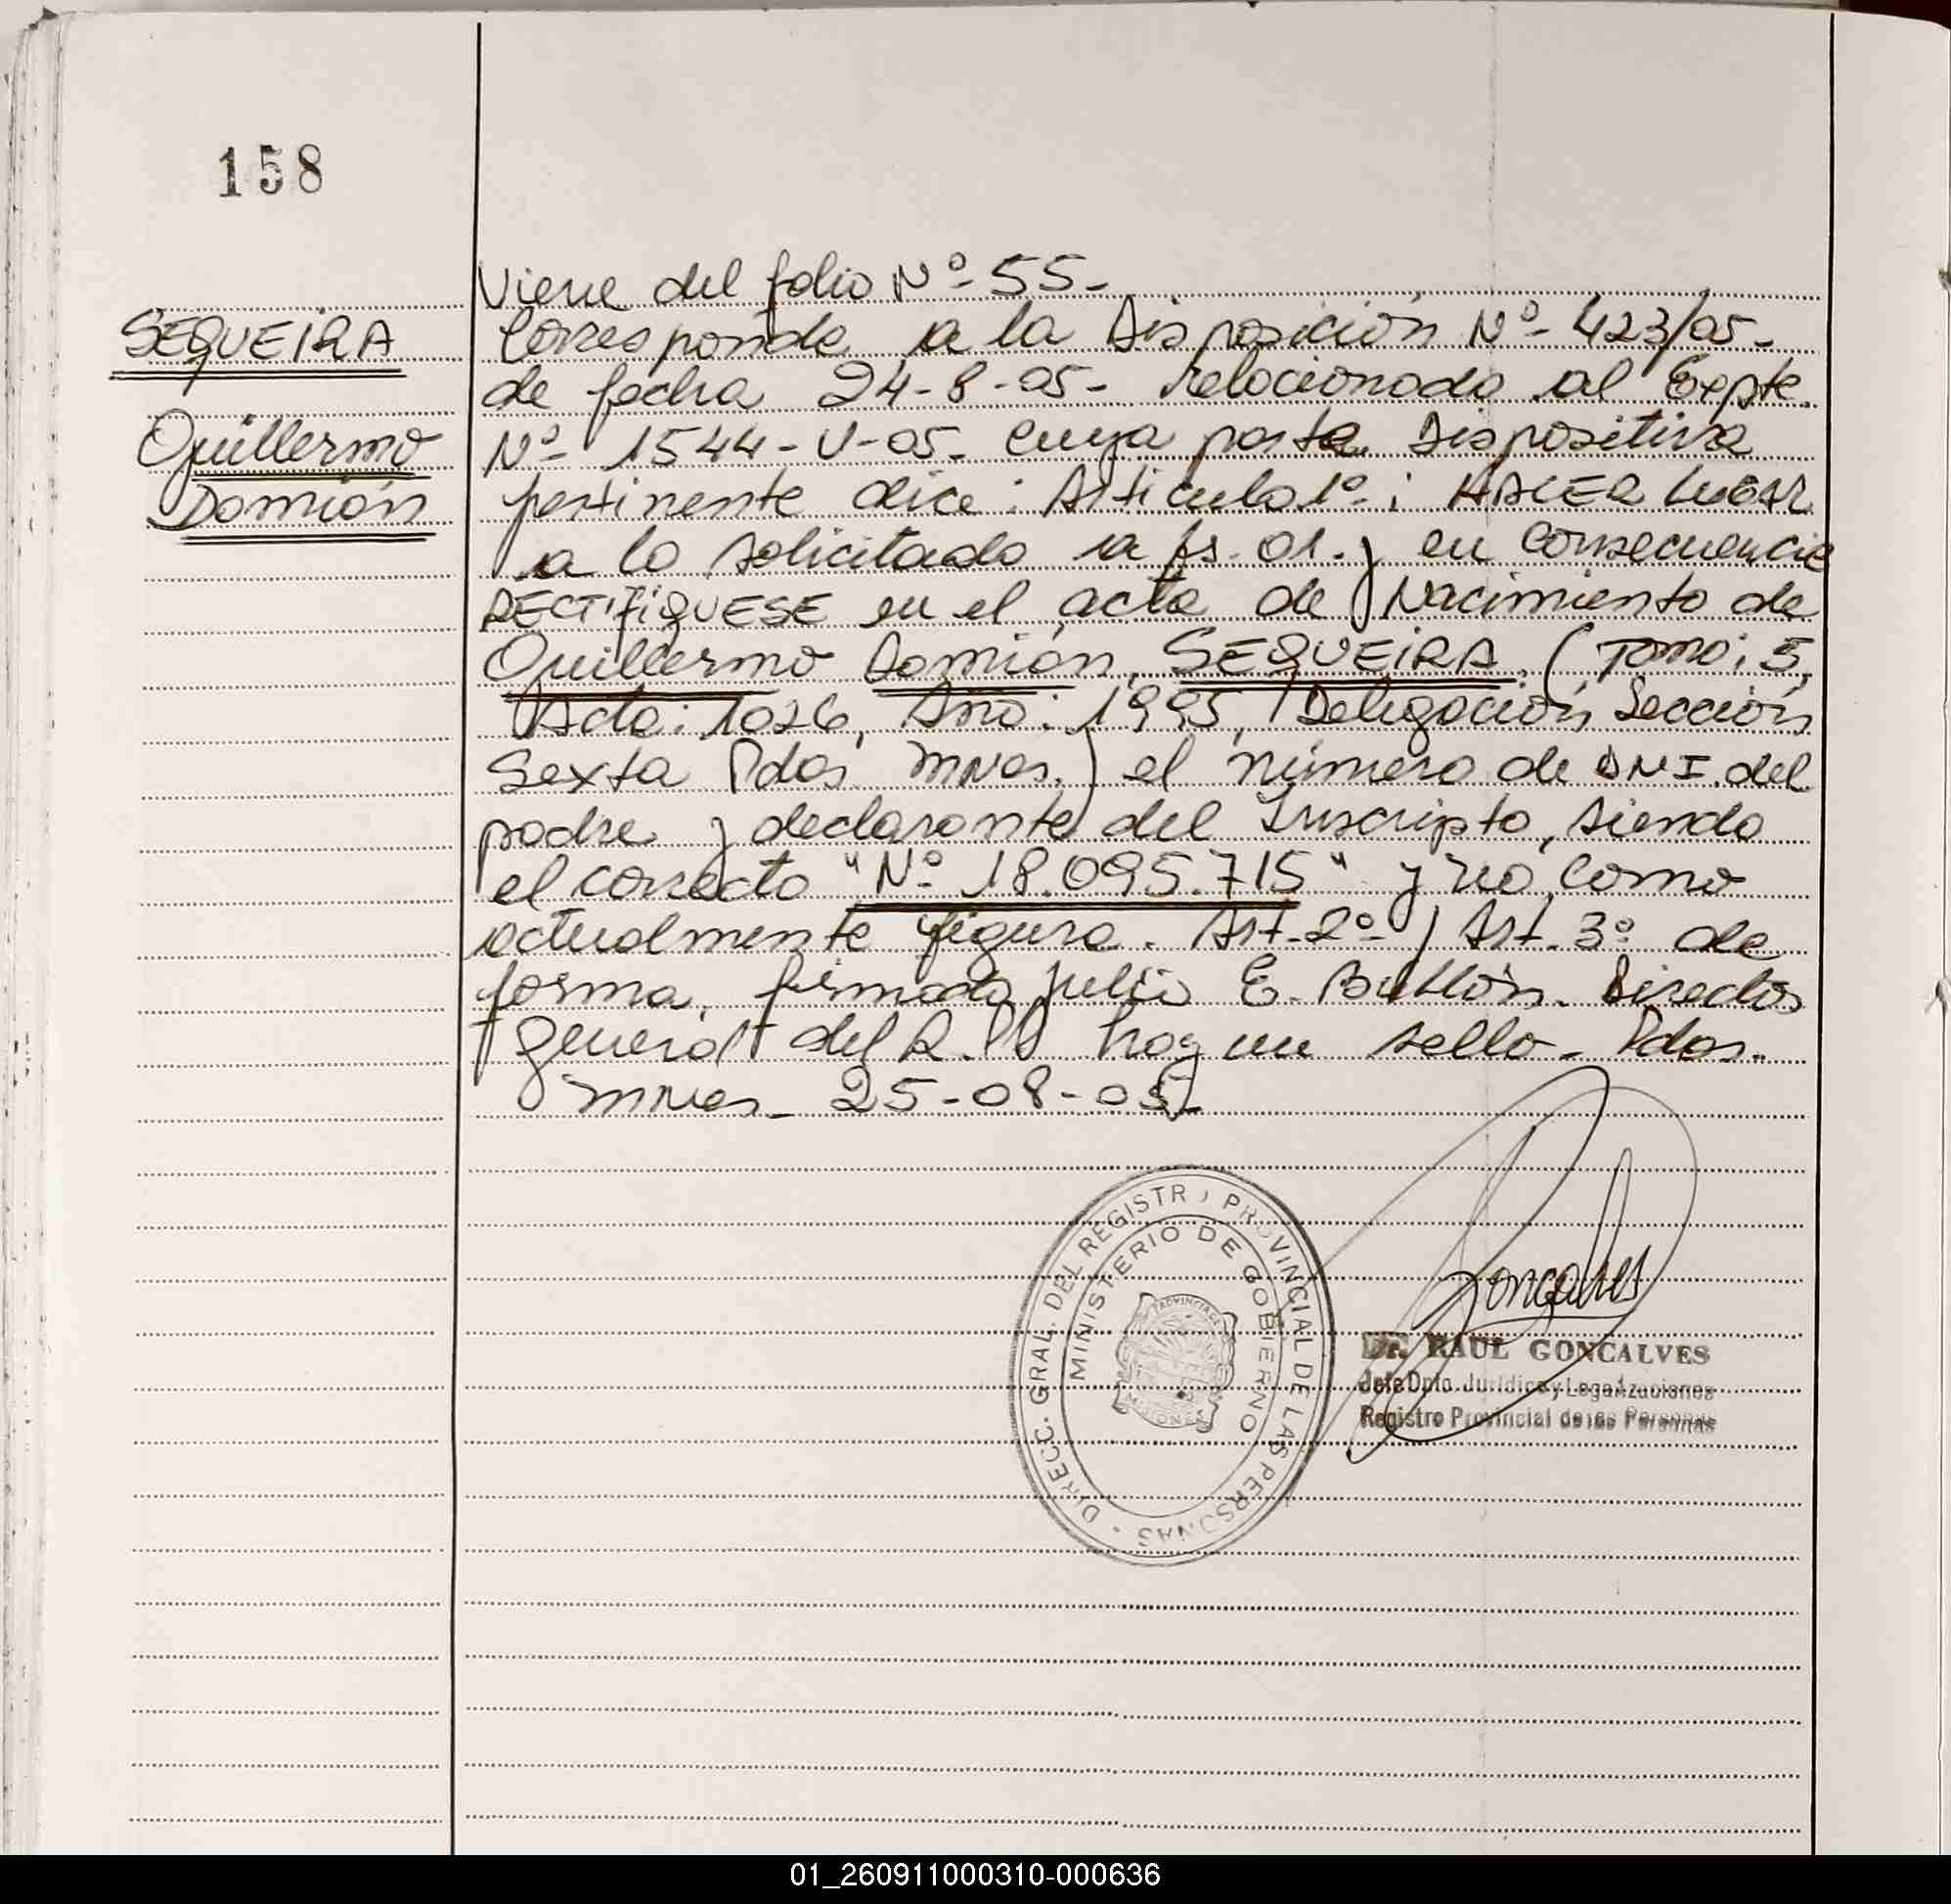 158
Viene del folio Nº 55-
SEQUEIRA
Corresponde a la Disposición Nº 423/05-
de fecha 24-8-05- relacionado al Expte.
Guillermo
Nº 1544-V-05- cuya parte Dispositiva
Damián
pertinente dice: Artículo 1º: HACER LUGAR
a lo solicitado a fs. 01. y en consecuencia
RECTIFIQUESE en el acta de Nacimiento de
Guillermo Damián SEQUEIRA. (Tomo: 5,
Acta: 1026, Año: 1995, Delegación Sección
Sexta Pdas. Mnes.) el número de DNI. del
padre y declarante del Inscripto, siendo
el correcto "Nº 18.095.715" y no como
actualmente figura. Art. 2º y Art. 3º de
forma. firmado Julio E. Bullón. Director
general del R.P.P hay un sello- Pdas.
Mnes- 25-08-05-
DIRECC. GRAL. DEL REGISTRO PROVINCIAL DE LAS PERSONAS
MINISTERIO DE GOBIERNO
Goncalves
Dr. RAUL GONCALVES
Jefe Dpto. Jurídico y Legalizaciones
Registro Provincial de las Personas
01_260911000310-000636